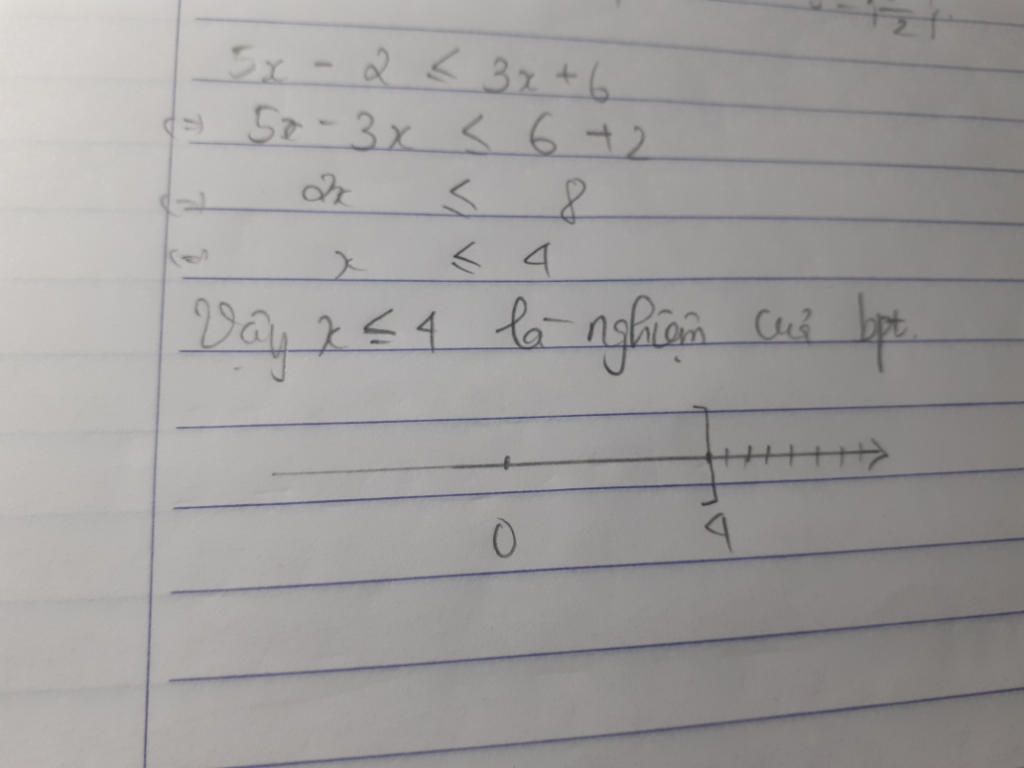 5x - 2 ≤ 3x + 6
<=> 5x - 3x ≤ 6 + 2
<=> 2x ≤ 8
<=> x ≤ 4
Vậy x ≤ 4 là nghiệm của bpt.
0 4